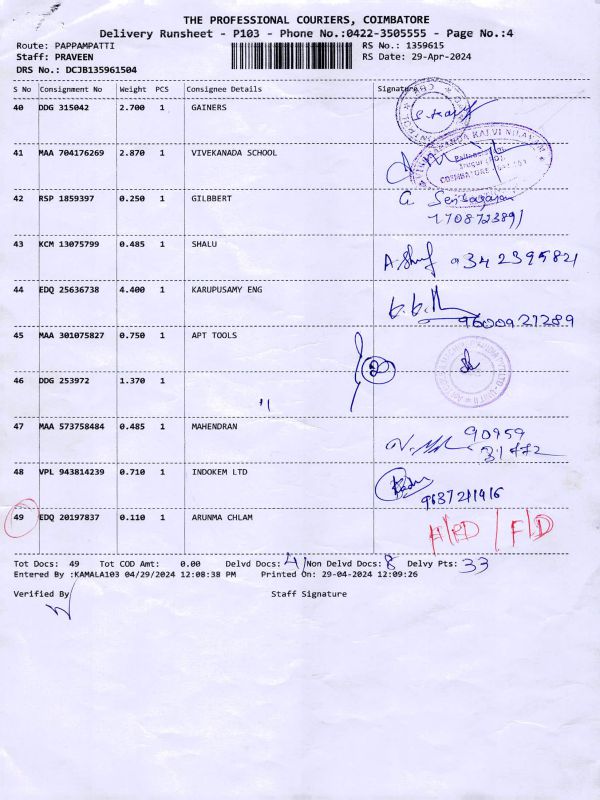 THE PROFESSIONAL COURIERS, COIMBATORE
Delivery Runsheet - P103 - Phone No.:0422-3505555 - Page No.:4
Route: PAPPAMPATTI RS No.: 1359615
Staff: PRAVEEN RS Date: 29-Apr-2024
DRS No.: DCJB135961504
S No Consignment No Weight PCS Consignee Details Signature
40 DDG 315042 2.700 1 GAINERS
41 MAA 704176269 2.870 1 VIVEKANADA SCHOOL
42 RSP 1859397 0.250 1 GILBBERT
43 KCM 13075799 0.485 1 SHALU
44 EDQ 25636738 4.400 1 KARUPUSAMY ENG
9600921289
45 MAA 301075827 0.750 1 APT TOOLS
2
46 DDG 253972 1.370 1
"
47 MAA 573758484 0.485 1 MAHENDRAN 90959
31472
48 VPL 943814239 0.710 1 INDOKEM LTD
9637211916
49 EDQ 20197837 0.110 1 ARUNMA CHLAM
Tot Docs: 49 Tot COD Amt: 0.00 Delvd Docs: 41 Non Delvd Docs: 8 Delvy Pts: 33
Entered By :KAMALA103 04/29/2024 12:08:38 PM Printed On: 29-04-2024 12:09:26
Verified By Staff Signature